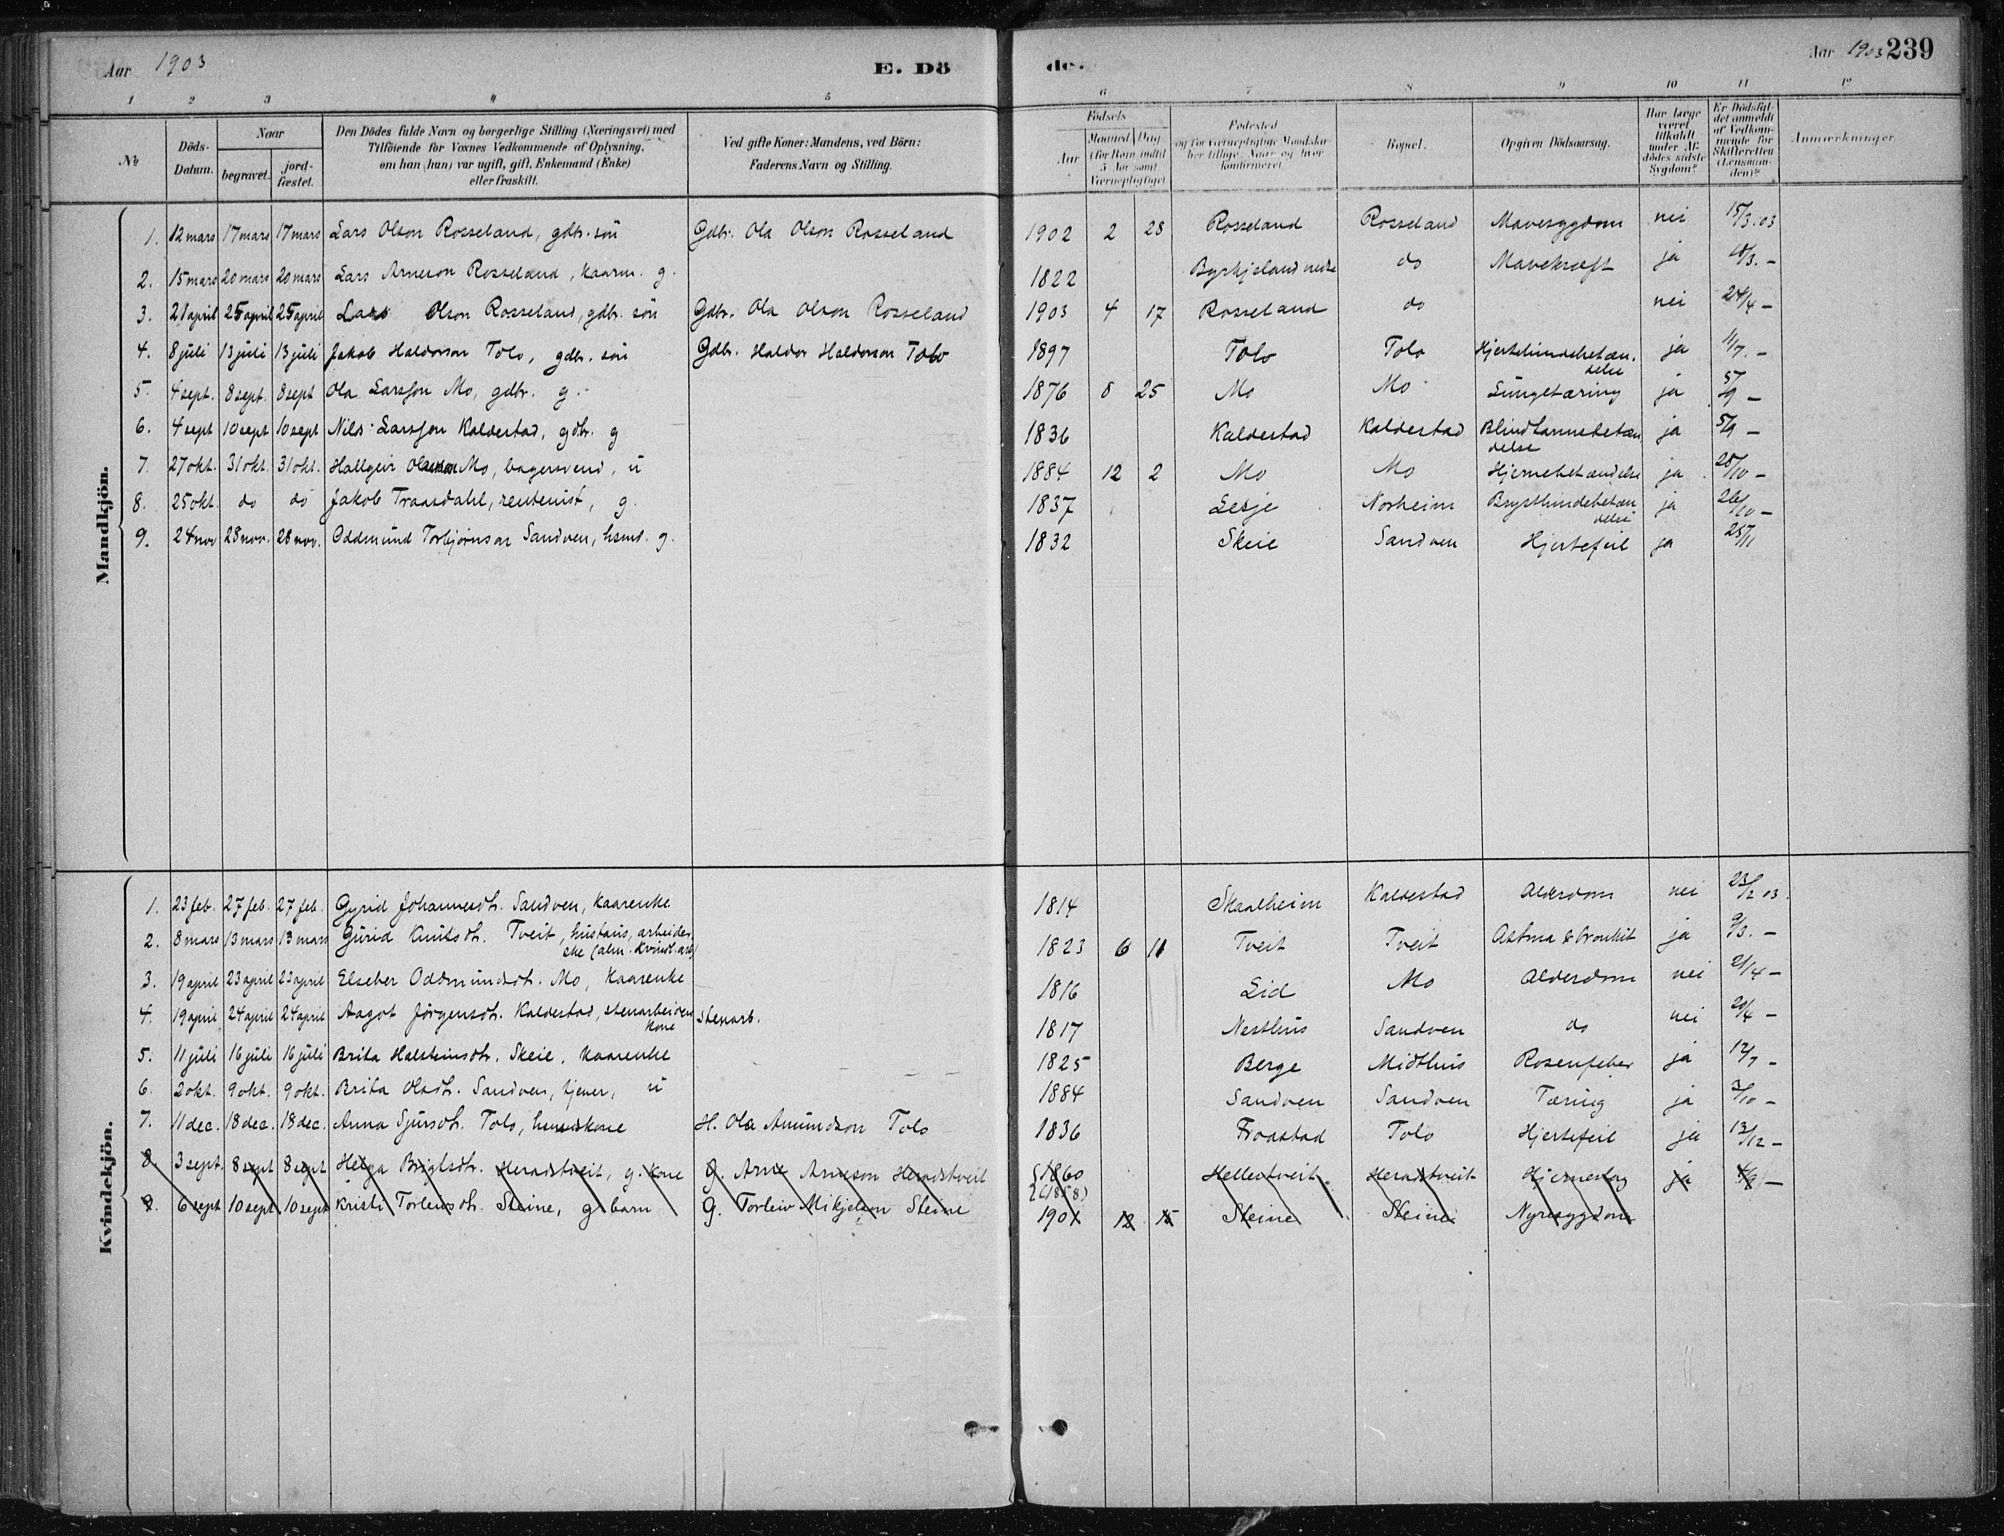 Aar 1903 E. Dö de. Aar 1903 239
1 2 3 4 5 6 7 8 9 10 11 12
No Döds-Datum. Naar begravet. jord-fæstet. Den Dödes fulde Navn og borgerlige Stilling (Næringsvei) med Tilföiende for Voxnes Vedkommende af Oplysning, om han (hun) var ugift, gift, Enkemand (Enke) eller fraskilt. Ved gifte Koner: Mandens, ved Börn: Faderens Navn og Stilling. Födsels Aar Maaned Dag (for Børn indtil 5 Aar samt Værnepligtige). Fødested og for værnepligtige Mandskaber tillige: Naar og hvor konfirmeret. Bopæl. Opgiven Dödsaarsag. Har læge været tilkaldt under Afdödes sidste Sygdom? Er Dödsfaldet anmeldt af Vedkommende for Skifteretten (Lensmanden)? Anmærkninger
Mandkjön.
1. 12 mars 17 mars 17 mars Lars Olson Rosseland, gdbr. sön Gdbr. Ola Olson Rosseland 1902 2 28 Rosseland Rosseland Mavesygdom nei 15/3.03
2. 15 mars 20 mars 20 mars Lars Arneson Rosseland, kaarm. g. 1822 Byrkjeland nedre do Mavekræft ja 18/3. –
3. 21 april 25 april 25 april Lars Olson Rosseland, gdbr. sön Gdbr. Ola Olson Rosseland 1903 4 17 Rosseland do nei 24/4 –
4. 8 juli 13 juli 13 juli Jakob Haldorson Tolo, gdbr. sön Gdbr. Haldor Haldorson Tolo 1897 Tolo Tolo Hjertehindebetæn.delse ja 11/7. –
5. 4 sept. 8 sept. 8 sept Ola Larsson Mo, gdbr. g. 1876 8 25 Mo Mo Lungetæring ja 5/9 –
6. 4 sept 10 sept 10 sept Nils Larsson Kaldestad, gdbr. g 1836 Kaldestad Kaldestad Blindtarmsbetændelse ja 5/9 –
7. 27 okt. 31 okt. 31 okt. Hallgeir Mo, bagersvend, u 1884 12 2 Mo Mo Hjernebetændelse ja 28/10 –
8. 25 okt. do do Jakob Traasdahl, rentenist, g. 1837 Lesje Norheim Brysthindebetændelse ja 26/10 –
9. 24 nov 28 nov. 28 nov. Oddmund Torbjørnson Sandven, husm. g. 1832 Skeie Sandven Hjertefeil ja 25/11
Kvindekjön.
1. 23 feb. 27 feb. 27 feb. Gyrid Johannesdtr. Sandven, kaarenke 1814 Skaalheim Kaldestad Alderdom nei 23/2 03.
2. 8 mars 13 mars 13 mars Gurid Knutsdtr. Tveit, hustaus, arbeiderske (alm. kvindearb) 1823 6 11 Tveit Tveit Astma & bronkit ja 9/3. –
3. 19 april 23 april 23 april Elseber Oddmundsdtr. Mo, kaarenke 1816 Lid Mo Alderdom nei 21/4 –
4. 19 april 24 april 24 april Aagot Jørgensdtr. Kaldestad, stenarbeiderkone stenarb. 1817 Nesthus Sandven do nei 20/4 –
5. 11 juli 16 juli 16 juli Brita Halsteinsdtr. Skeie, kaarenke 1825 Berge Midthus Rosenfeber ja 12/7 –
6. 2 okt. 9 okt. 9 okt. Brita Olsdtr. Sandven, tjener, u 1884 Sandven Sandven Tæring ja 3/10 –
7. 11 dec. 18 dec. 18 dec. Anna Sjursdtr. Tolo, husmskone H. Ola Amundson Tolo 1836 Fraastad Tolo Hjertefeil ja 13/12 –
8. 3 sept. 8 sept 8 sept Helga Brigtsdtr. Heradstveit, g. kone G. Arne Arneson Heradstveit 1860 (1858) Hellestveit Heradstveit Hjerneslag ja 4/9 –
9. 6 sept 10 sept. 10 sept Kristi Torleivsdtr. Steine, g barn G. Torleiv Mikjelson Steine 1901 12 15 Steine Steine Nyresygdom